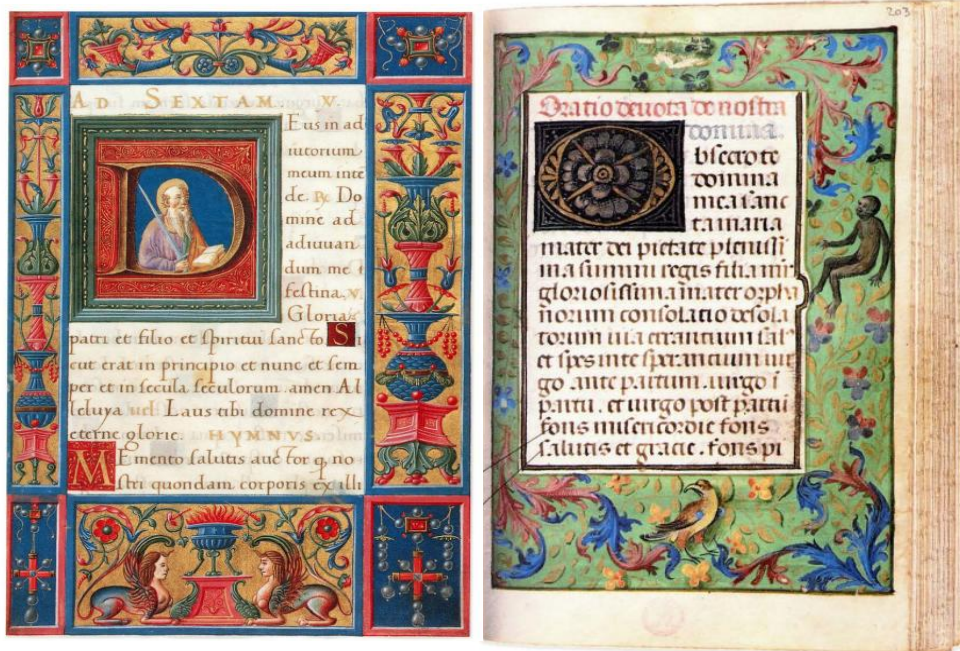 AD SEXTAM. V.
DEus in ad
iutorium
meum inte
de. R. Do
mine ad
adiuuan
dum me
festina. V.
Gloria
patri et filio et spiritui sancto Si
cut erat in principio et nunc et sem
per et in secula seculorum. amen Al
leluya uel Laus tibi domine rex
eterne glorie. HYMNVS.
MEmento salutis auctor q̃ no
stri quondam corporis ex illi
203
Oratio deuota de nostra
domina.
bsecro te
domina
mea sanc
ta maria
mater dei pietate plenissi
ma summi regis filia m̃r
gloriosissima mater orpha
norum consolatio desola
torum uia errantium sal'
et spes in te sperantium uir
go ante partum uirgo ĩ
partu. et uirgo post partũ
fons misericordie fons
salutis et gracie. fons pi